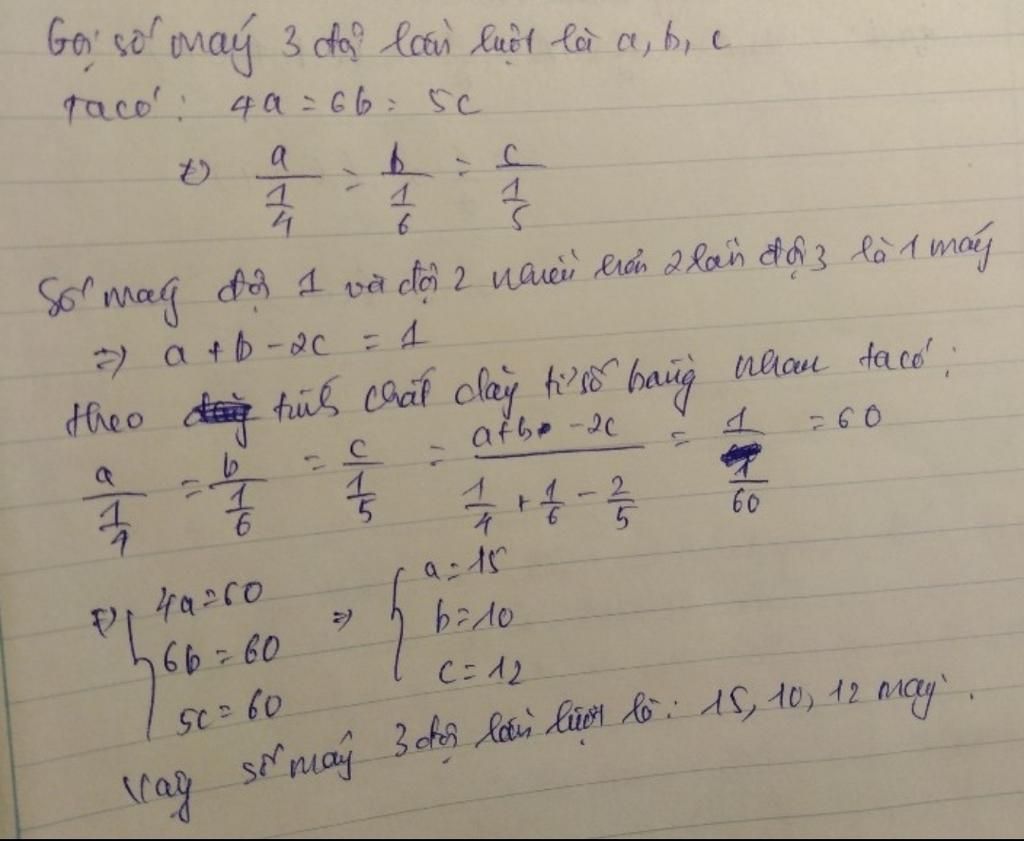 Gọi số máy 3 đội lần lượt là a, b, c
ta có: 4a = 6b = 5c
⇔ a/(1/4) = b/(1/6) = c/(1/5)
Số máy đội 1 và đội 2 nhiều hơn 2 lần đội 3 là 1 máy
⇒ a + b - 2c = 1
theo tính chất dãy tỉ số bằng nhau ta có:
a/(1/4) = b/(1/6) = c/(1/5) = (a+b-2c)/(1/4 + 1/6 - 2/5) = 1/(1/60) = 60
⇒ { 4a = 60 ⇒ { a = 15
6b = 60 b = 10
5c = 60 c = 12
Vậy số máy 3 đội lần lượt là: 15, 10, 12 máy.